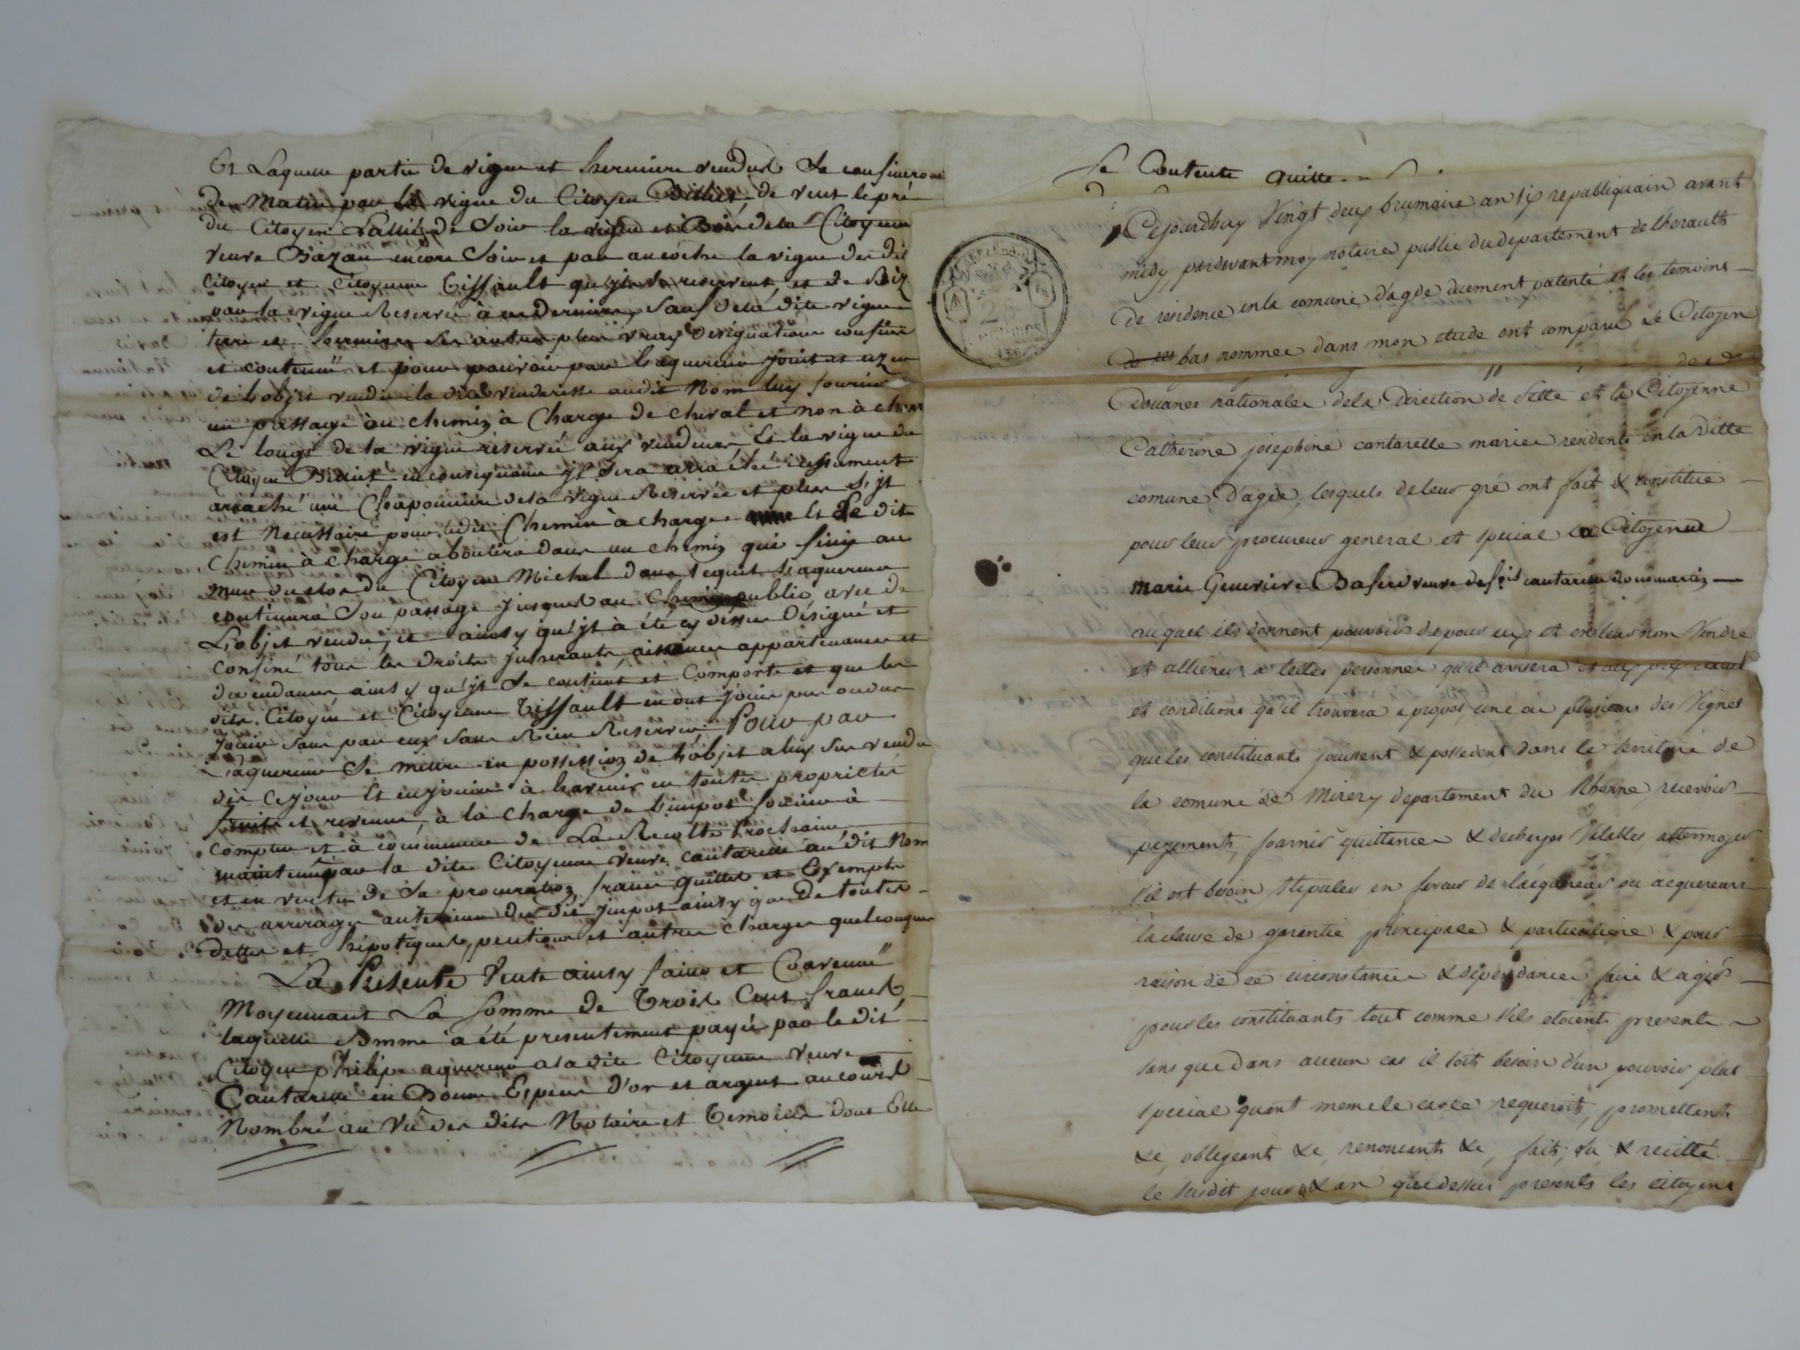 Et Laquelle partie de vigne et hermiture vendues Se confinerons
de Matin par la vigne du Citoyen de vent le pré
du Citoyen de Soir la vigne et Bois de la Citoyenne
veuve Bazan encore Soir et par ancoche la vigne des dits
Citoyen et Citoyenne Tissault qu'jls se reservent, et de Biz
par la vigne Reservée à ces Derniers, Sauf de la dite vigne
terre et hermiture Ses autres plus vrays designations confins
et contenue et pour pouvoir par Laquereur jouir et uzer
de Lobjet vendu la dite venderesse audit Nom luy fournira
un passage ou chemin à Charge de cheval et non à char
Le long de la vigne reservée aux vendeurs Et la vigne du
Citoyen en consequence jl Sera incessament
araché une Chaponniere de la vigne Reservée et plus S'jl
est Necessaire pour ledit Chemin à charge Et Le dit
Chemin à Charge aboutira dans un chemin qui Sing au
mur du clos du Citoyen Michel dans lequel Laquereur
continuera Son passage jusques au Chemin public avec de
L'objet vendu, et ainsy qu'jl à été cy dessus Désigné et
confiné tous les Droits jusserants, aisances appartenances et
dependances ainsy qu'jl Se contient et Comporte et que les
dits Citoyen et Citoyenne Tissault en ont jouir pu ou dus
jouir Sans par eux Sans Rien Reserver Pour par
L'aquereur Se mettre en possession de L'objet a luy Sus vendu
dès Cejour Et en jouir à L'avenir en toutes propriétés
fruits et revenus, à la Charge de L'impot foncier à
compter et à commencer de La Recolte Prochaine
maintenu par la dite Citoyenne veuve Cantarelle au dit Nom
et en vertu de Sa procuration franc quitte et Exempte
des arrerages anterieurs du dit jmpot ainsy que De toutes
dettes et hipoteques, pentions et autres charges quelconques
La Présente Vente ainsy faite et Convenue
Moyennant La Somme de Trois Cent francs
laquelle Somme à été presentement payée par le dit
Citoyen philipe aquereur a la dite Citoyenne veuve
Cantarelle en Bonnes Especes D'or et argent au cours
Nombré au Vû des dits Notaire et Temoins dont Elle
Se Contente quitte
Cejourdhuy Vingt deux brumaire an six republiquain avant
midy pardevant moy notaire public du departement de lherault
de residence en la comune d'agde duement patenté et les temoins
bas nommés dans mon etude ont comparu Le Citoyen
de
douanes nationales dela Direction de Sette et la Citoyenne
Catherine josephine cantarelle mariés residents en la ditte
comune d'agde, lesquels de leur gré ont fait & constitué
pour leur procureur general et special la Citoyenne
marie Genevieve veuve de cantarelle
auquel ils donnent pouvoir de pour eux et en leur nom Vendre
et alliener a telles personnes qu'il avisera et aux prix
et conditions qu'il trouvera a propos, une ou plusieurs des Vignes
que les constituants jouissent & possedent dans le territoire de
la comune de Mirery departement du Rhonne, recevoir
payements, fournir quittances & decharges Valables, attermoyer
s'il est besoin Stipuler en faveur de l'acquereur ou acquereurs
la clause de garantie principale & particuliere & pour
raison de ce circonstances & dependances faire & agir
pour les constituants tout comme s'ils etoient presents
sans que dans aucun cas il soit besoin d'un pouvoir plus
special quant meme le cas le requeroit, promettant
&c, obligeant &c, renonçant &c, fait, lu & recitté
le susdit jour & an que dessus presents les citoyens